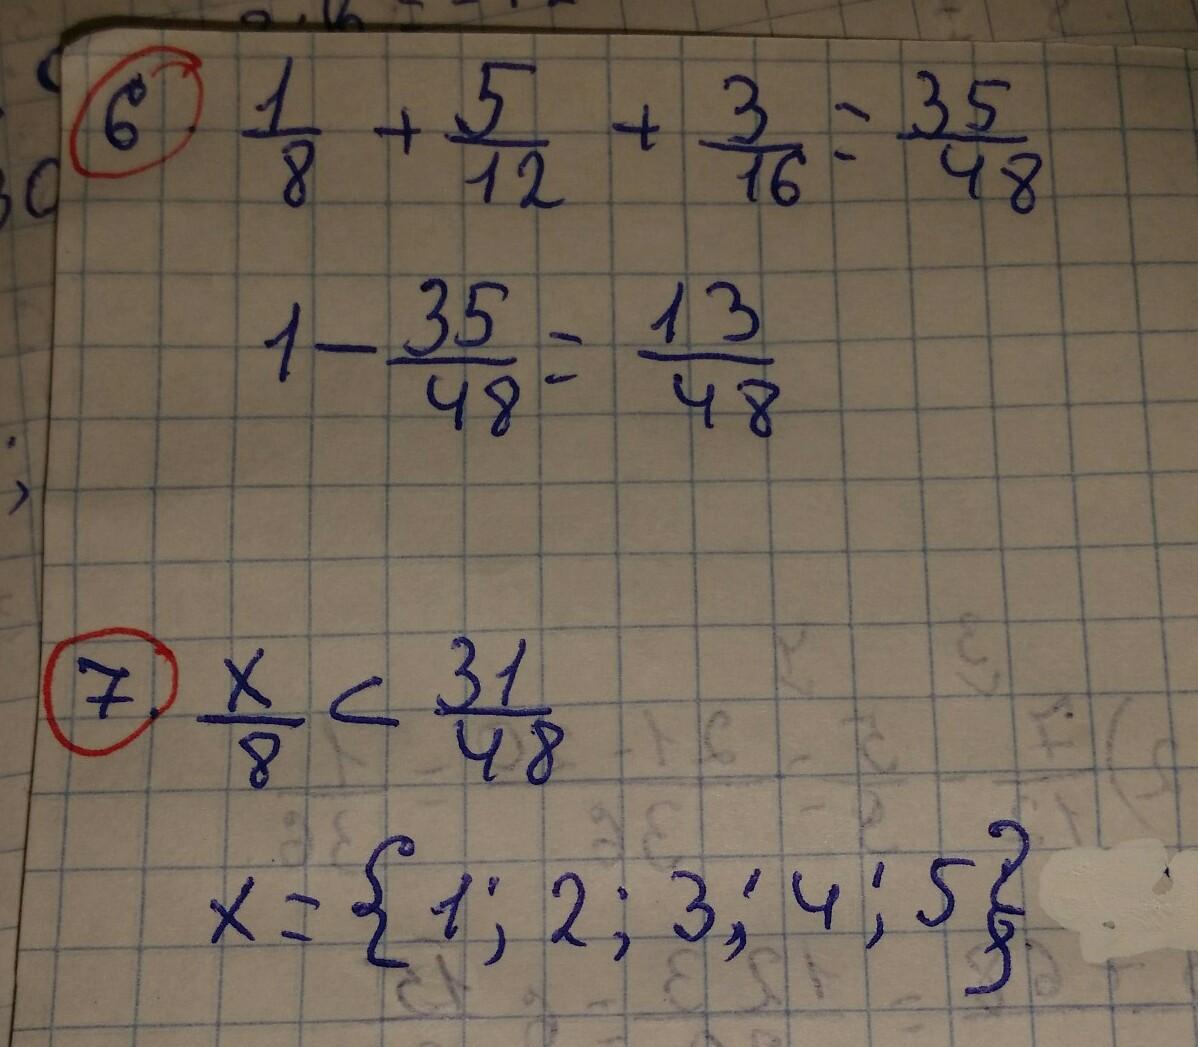 6. 1/8 + 5/12 + 3/16 = 35/48
1 - 35/48 = 13/48
7. x/8 < 31/48
x = {1; 2; 3; 4; 5}